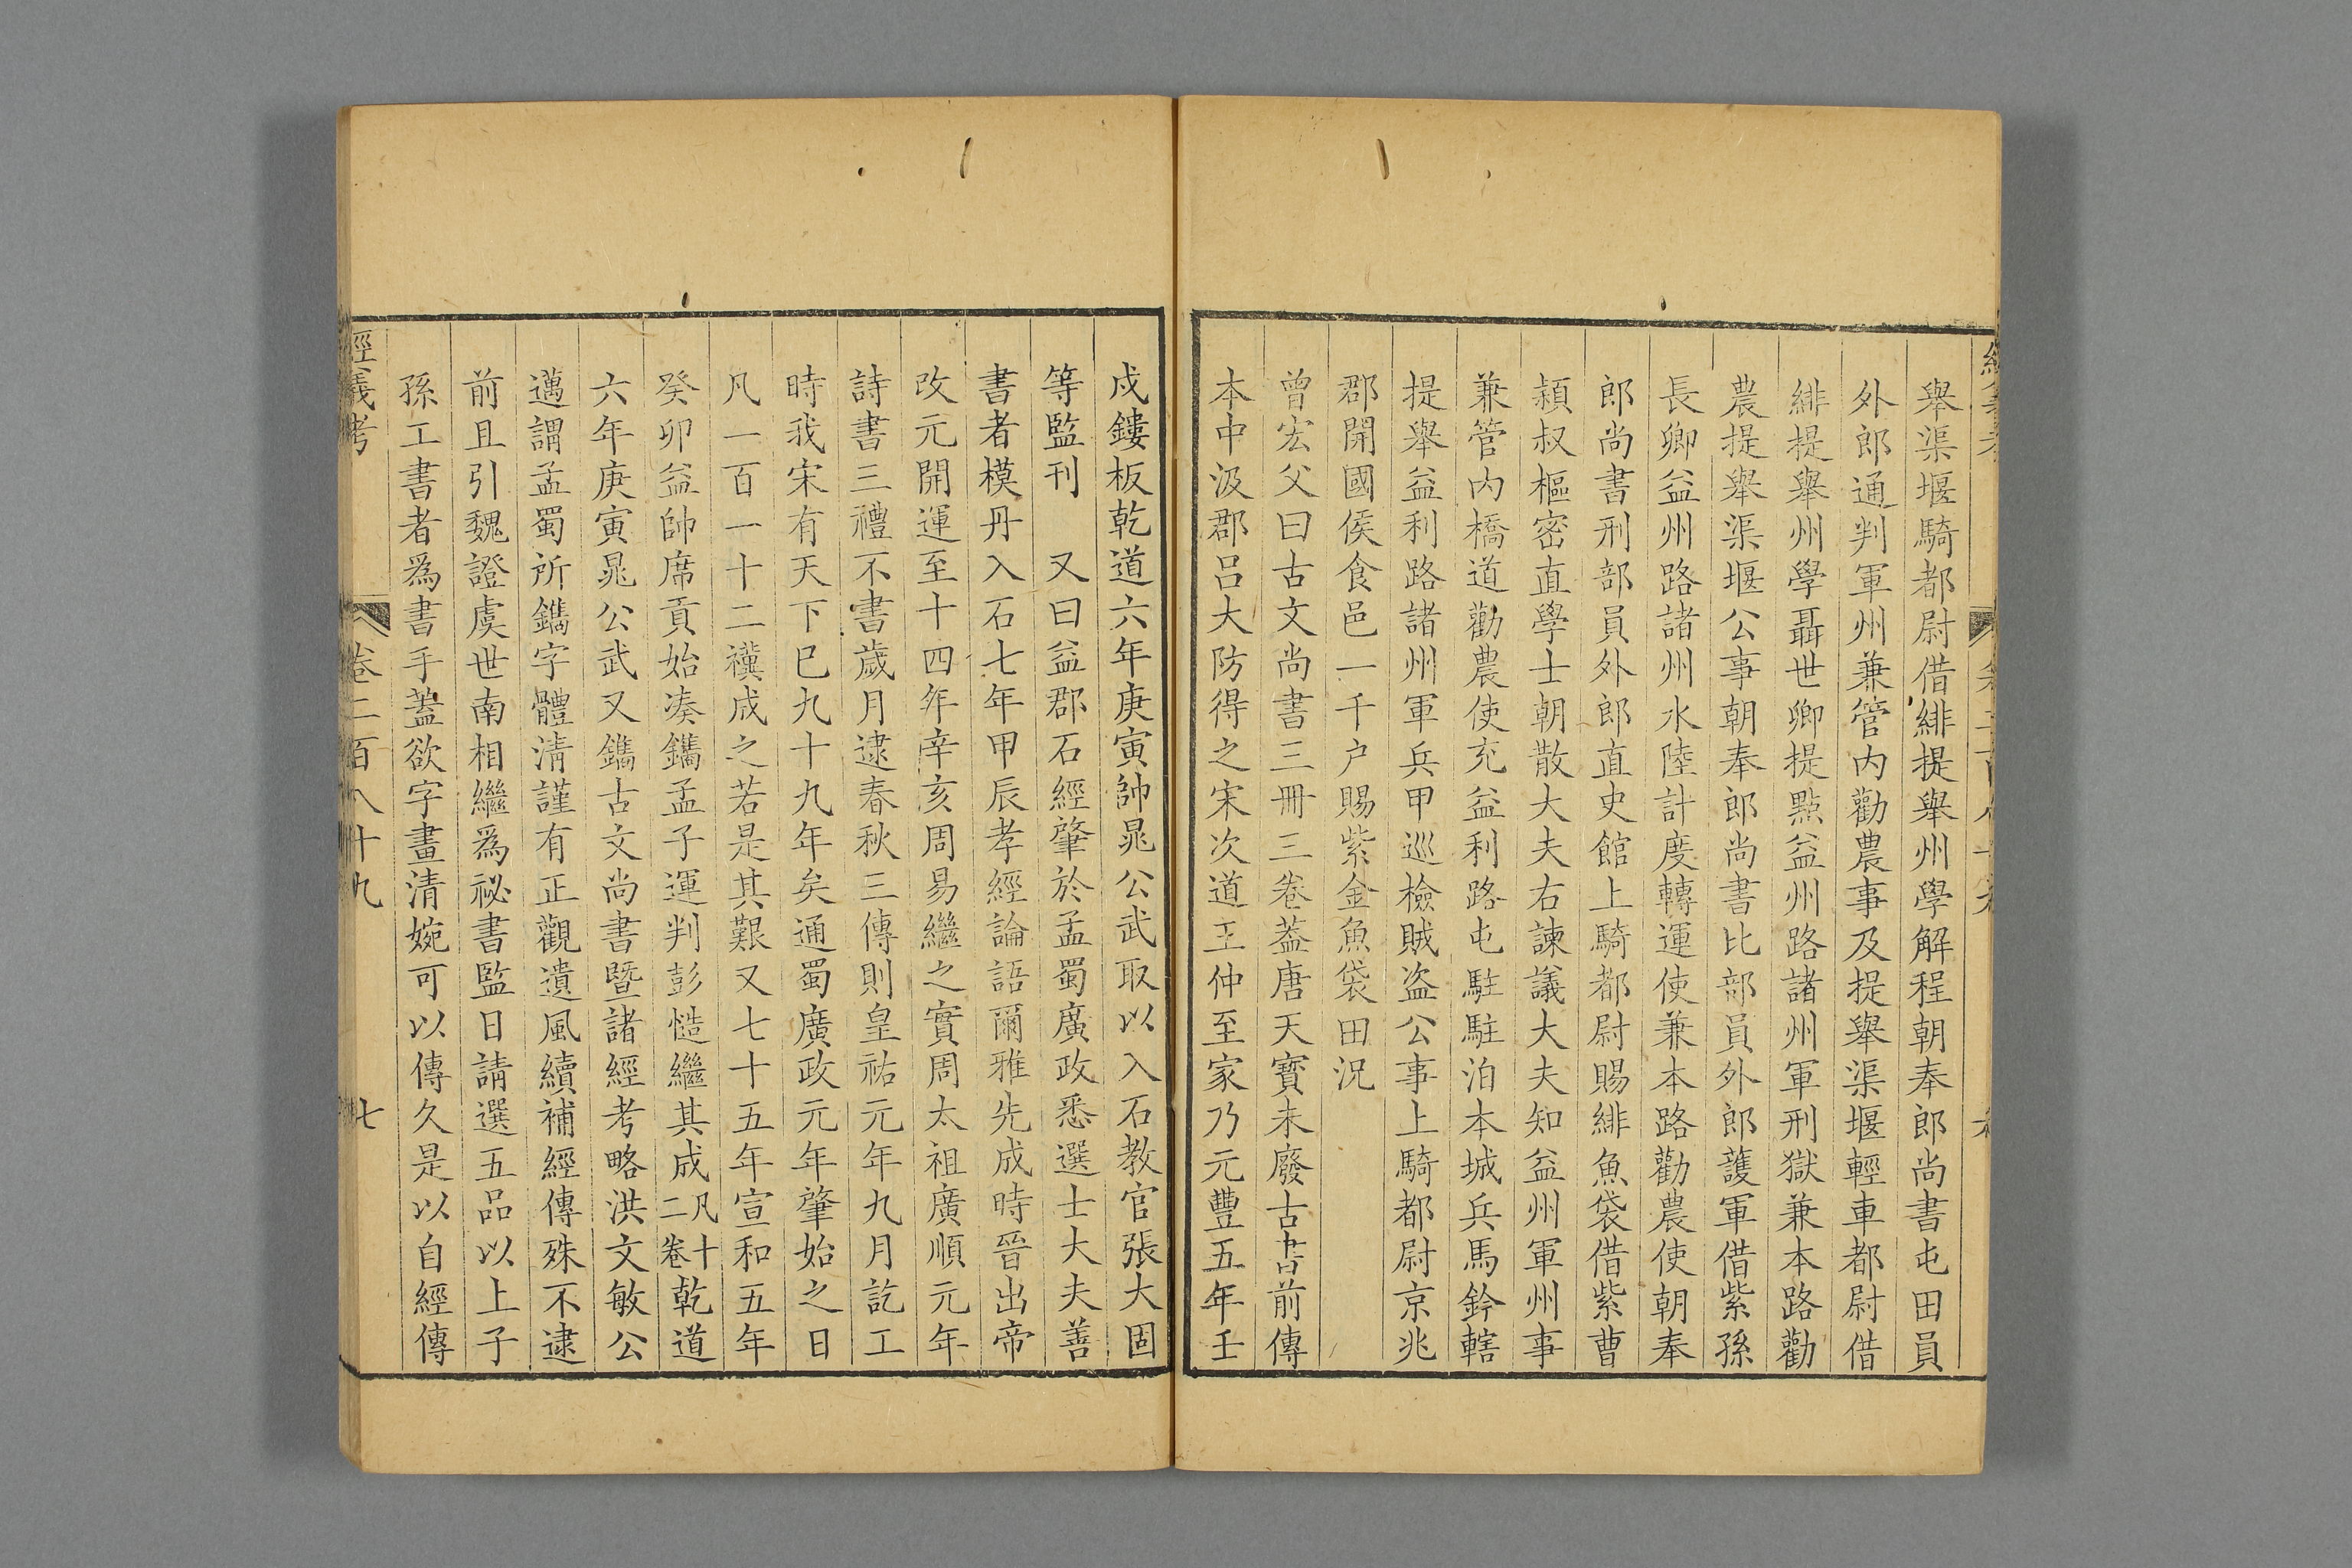 舉渠堰騎都尉借緋提舉州學解程朝奉郎尚書屯田員
外郎通判軍州兼管內勸農事及提舉渠堰輕車都尉借
緋提舉州學聶世卿提點益州路諸州軍刑獄兼本路勸
農提舉渠堰公事朝奉郎尚書比部員外郎護軍借紫孫
長卿益州路諸州水陸計度轉運使兼本路勸農使朝奉
郎尚書刑部員外郎直史館上騎都尉賜緋魚袋借紫曹
穎叔樞密直學士朝散大夫右諫議大夫知益州軍州事
兼管內橋道勸農使充益利路屯駐駐泊本城兵馬鈐轄
提舉益利路諸州軍兵甲巡檢賊盗公事上騎都尉京兆
郡開國侯食邑一千户賜紫金魚袋田況
曾宏父曰古文尚書三冊三卷葢唐天寶未廢古書前傳
本中汲郡呂大防得之宋次道王仲至家乃元豐五年壬
戍鏤板乾道六年庚寅帥晁公武取以入石教官張大固
等監刊　又曰益郡石經肇於孟蜀廣政悉選士大夫善
書者模丹入石七年甲辰孝經論語爾雅先成時晉出帝
改元開運至十四年辛亥周易繼之實周太祖廣順元年
詩書三禮不書歲月逮春秋三傳則皇祐元年九月訖工
時我宋有天下巳九十九年矣通蜀廣政元年肇始之日
凡一百一十二禩成之若是其艱又七十五年宣和五年
癸卯益帥席貢始凑鐫孟子運判彭慥繼其成凡十二卷乾道
六年庚寅晁公武又鐫古文尚書暨諸經考略洪文敏公
邁謂孟蜀所鐫字體清謹有正觀遺風續補經傳殊不逮
前且引魏證虞世南相繼為祕書監日請選五品以上子
孫工書者爲書手蓋欲字畫清婉可以傳久是以自經傳
經義考　卷二百八十九　七